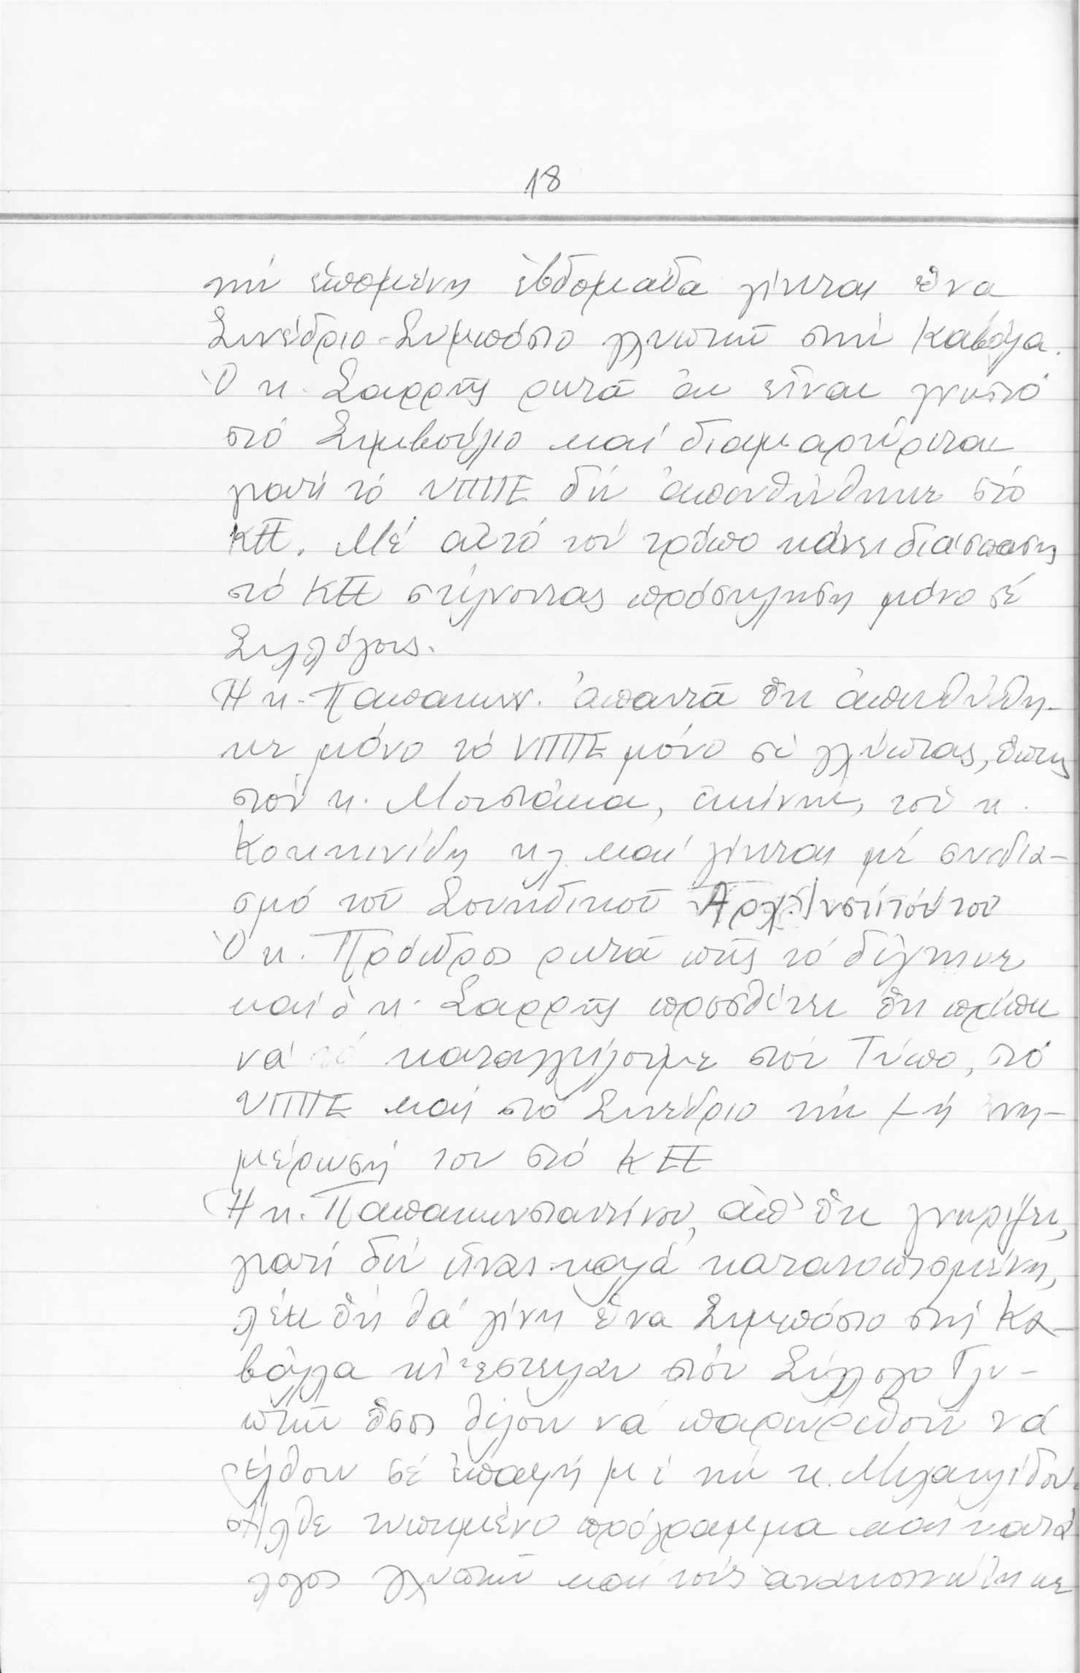 18
τήν ἑπομένη ἑβδομάδα γίνεται ἕνα
Συνέδριο-Συμπόσιο γλυπτῶν στήν Καβάλα.
Ὁ κ. Σαρρῆς ρωτᾶ ἄν εἶναι γνωστό
στό Συμβούλιο καί διαμαρτύρεται
γιατί τό ΥΠΠΕ δέν ἀπευθύνθηκε στό
ΚΕΕ. Μέ αὐτό τόν τρόπο κάνει διάσπαση
στό ΚΕΕ στέλνοντας πρόσκληση μόνο σέ
Συλλόγους.
Ἡ κ. Παπακων. ἀπαντᾶ ὅτι ἀπευθύνθη-
κε μόνο τό ΥΠΠΕ μόνο σέ γλύπτας, ὅπως
στόν κ. Μουστάκα, τόν κ.
Κοκκινίδη κλ καί γίνεται μέ συνδυα-
σμό τοῦ Σουηδικοῦ Ἀρχ. Ἰνστιτούτου
Ὁ κ. Πρόεδρος ρωτᾶ πῶς τό δέχτηκε
καί ὁ κ. Σαρρῆς προσθέτει ὅτι πρέπει
νά καταγγείλουμε στόν Τύπο, στό
ΥΠΠΕ καί στό Συνέδριο τήν μή ἐνη-
μέρωσή του στό ΚΕΕ
Ἡ κ. Παπακωνσταντίνου, ἀπ' ὅτι γνωρίζει,
γιατί δέν εἶναι καλά κατατοπισμένη,
λέει ὅτι θά γίνη ἕνα Συμπόσιο στή Κα-
βάλλα κι ἔστειλαν στόν Σύλλογο Γλυ-
πτῶν ὅσοι θέλουν νά παρευρεθοῦν νά
ἔλθουν σέ ἐπαφή μέ τήν κ. Μιχαηλίδου.
Ἦλθε τυπωμένο πρόγραμμα καί κατά
λογος γλυπτῶν καί τούς ἀνακοινώθηκε